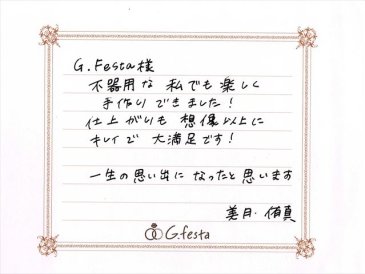 G.Festa様
不器用な 私でも楽しく
手作りできました！
仕上がりも 想像以上に
キレイで 大満足です！
一生の思い出に なったと思います
美月・侑真
G.festa